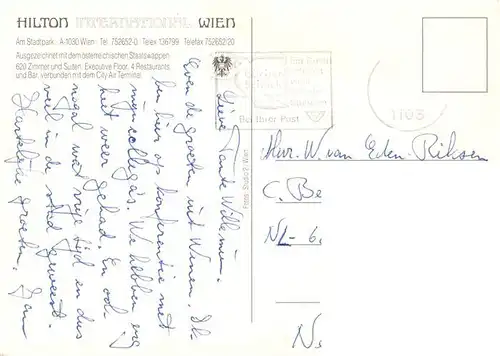 HILTON INTERNATIONAL WIEN
Am Stadtpark · A-1030 Wien · Tel. 752652-0 Telex 136799 Telefax 752652/20
Ausgezeichnet mit dem österreichischen Staatswappen
620 Zimmer und Suiten. Executive Floor. 4 Restaurants
und Bar, verbunden mit dem City Air Terminal
Bei Ihrer Post
1103
Lieve Tante Willemien,
Even de groeten uit Wenen. Ik
ben hier op konferentie met
mijn collega's. We hebben erg
weer gehad. En ook
nogal wat vrije tijd en dus
veel in de stad geweest.
Hartelijke groeten,
Foto: Studio 2 Wien
W. van Eden-Riksen
C. Be
NL- 6